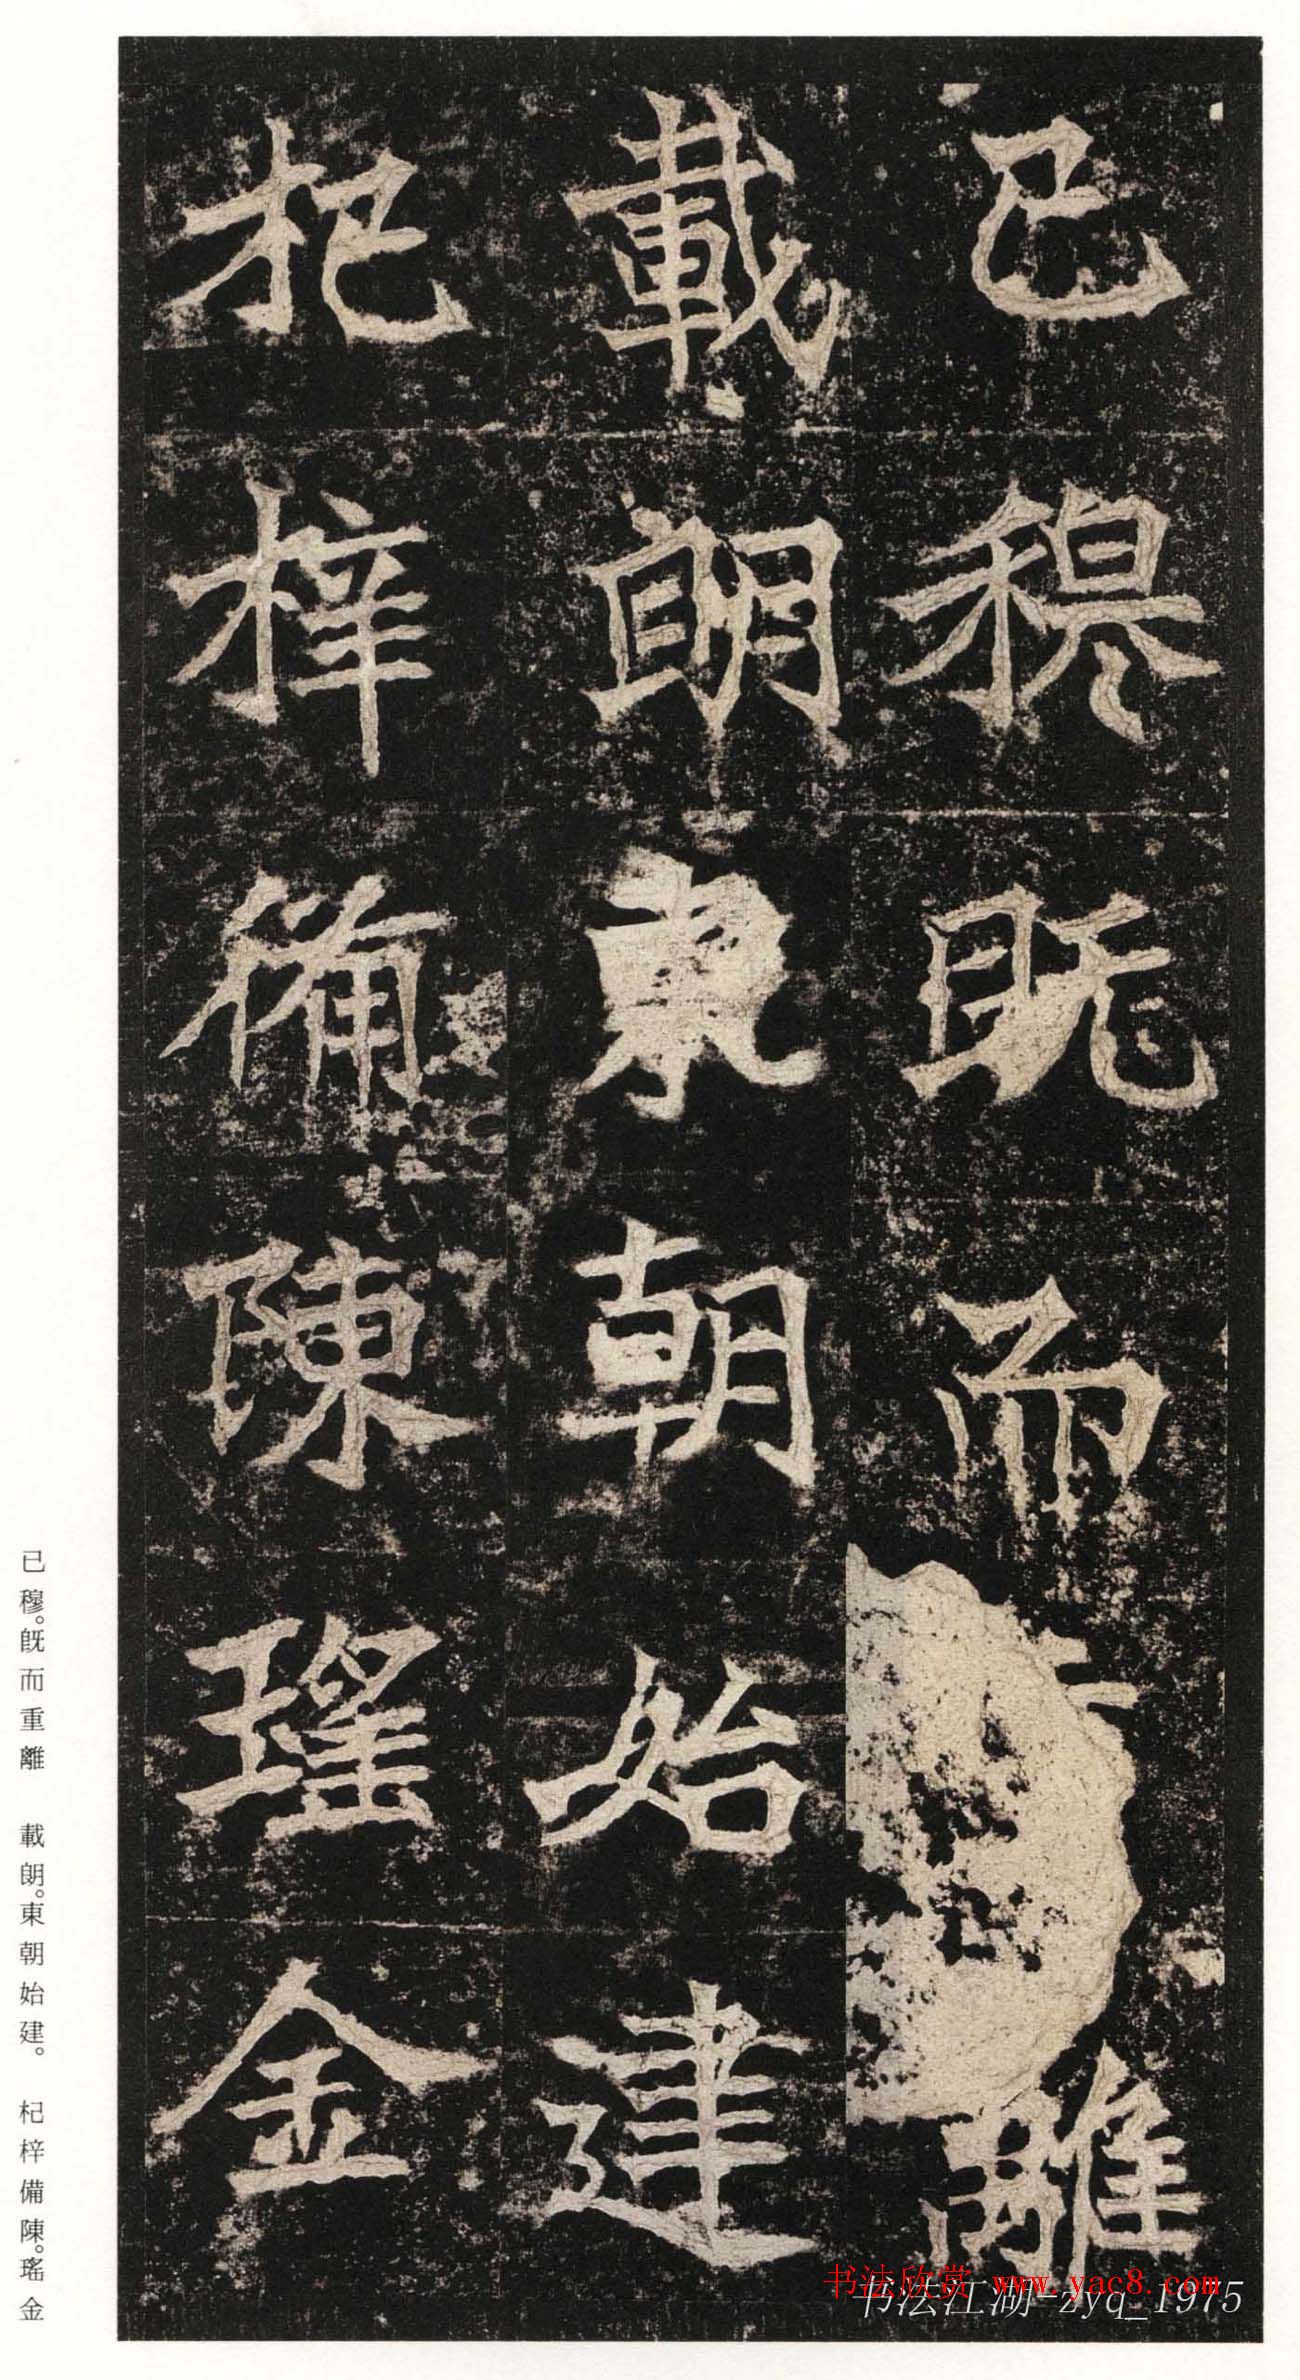 已穆既而離
載朗東朝始建
杞梓備陳瑤金
已穆。既而重離　載朗。東朝始建。　杞梓備陳。瑤金
书法欣赏 www.yac8.com
书法江湖-zyq_1975